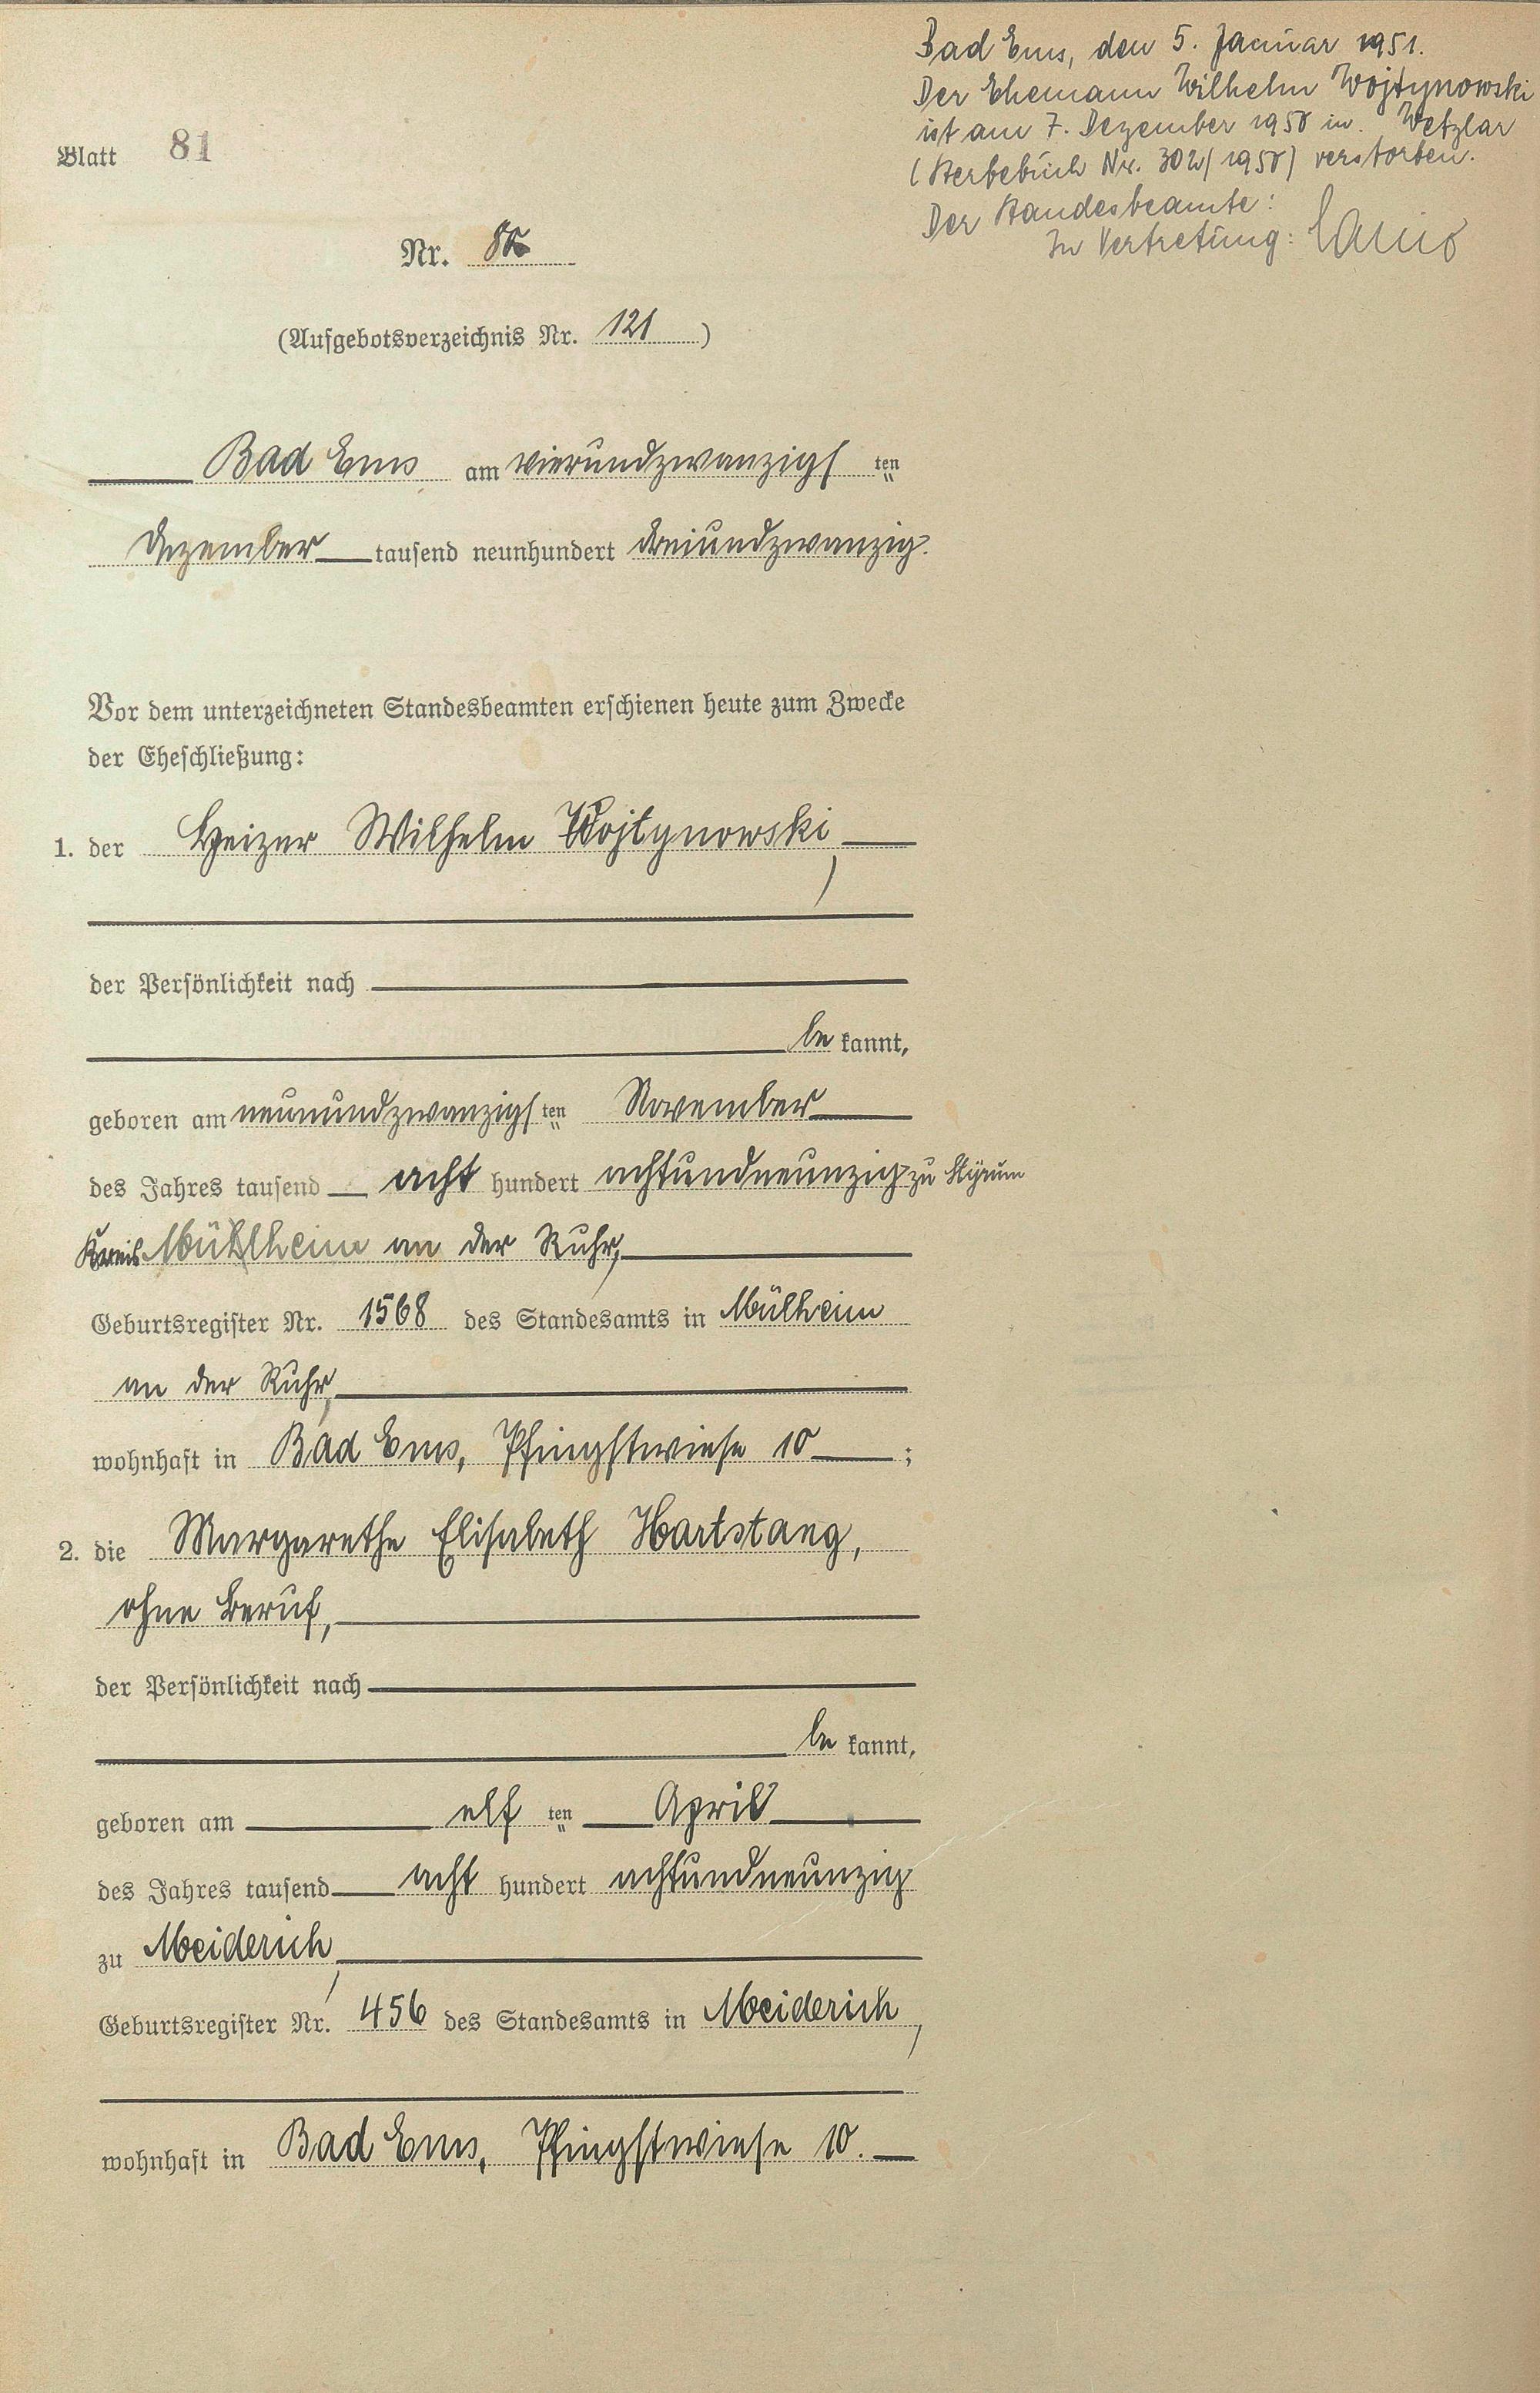 Bad Ems, den 5. Januar 1951.
Der Ehemann Wilhelm Wojtynowski
ist am 7. Dezember 1950 in Wetzlar
(Sterbebuch Nr. 302/1950) verstorben.
Der Standesbeamte:
In Vertretung:
Blatt 81
Nr. 80
(Aufgebotsverzeichnis Nr. 121)
Bad Ems am vierundzwanzigsten
Dezember tausend neunhundert dreiundzwanzig.
Vor dem unterzeichneten Standesbeamten erschienen heute zum Zwecke
der Eheschließung:
1. der Heizer Wilhelm Wojtynowski,
der Persönlichkeit nach
be kannt,
geboren am neunundzwanzigsten November
des Jahres tausend acht hundert achtundneunzig zu Styrum
Kreis Mühlheim an der Ruhr,
Geburtsregister Nr. 1568 des Standesamts in Mülheim
an der Ruhr,
wohnhaft in Bad Ems, Pfingstwiese 10;
2. die Margarethe Elisabeth Hartstang,
ohne Beruf,
der Persönlichkeit nach
be kannt,
geboren am elf ten April
des Jahres tausend acht hundert achtundneunzig
zu Meiderich,
Geburtsregister Nr. 456 des Standesamts in Meiderich,
wohnhaft in Bad Ems, Pfingstwiese 10.